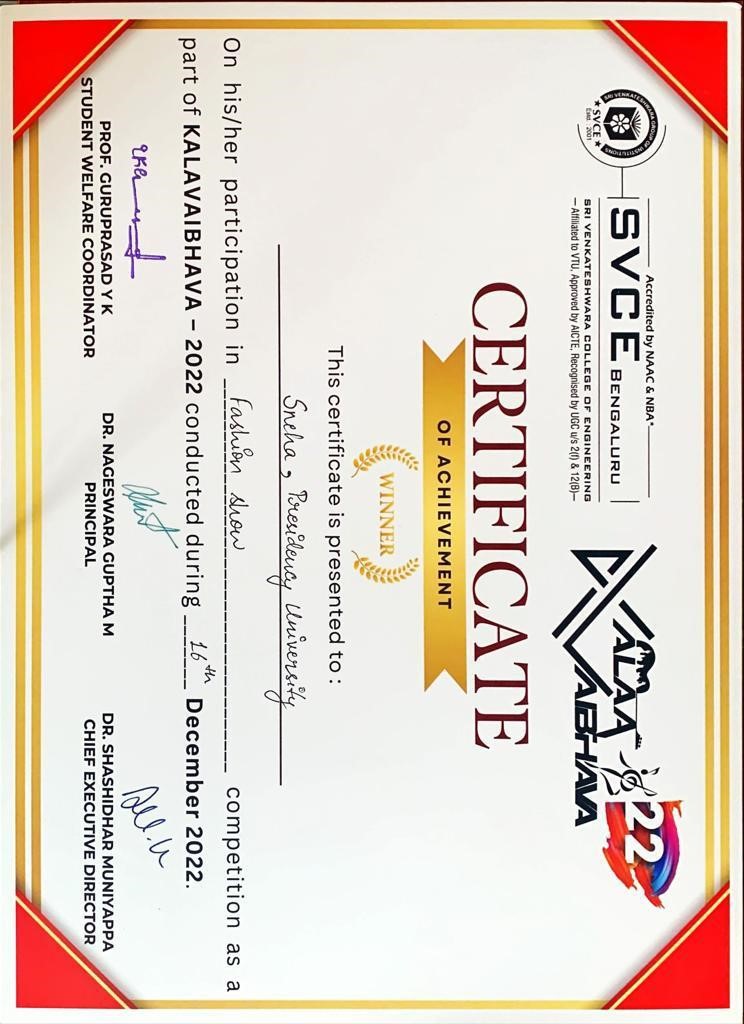 SRI VENKATESHWARA GROUP OF INSTITUTIONS
SVCE
Estd. : 2001
Accredited by NAAC & NBA*
SVCE BENGALURU
SRI VENKATESHWARA COLLEGE OF ENGINEERING
Affiliated to VTU, Approved by AICTE, Recognised by UGC u/s 2(f) & 12(B)
KALAA
VAIBHAVA
22
CERTIFICATE
OF ACHIEVEMENT
WINNER
This certificate is presented to :
Sneha, Presidency University
On his/her participation in Fashion show competition as a
part of KALAVAIBHAVA – 2022 conducted during 16th December 2022.
PROF. GURUPRASAD Y K
STUDENT WELFARE COORDINATOR
DR. NAGESWARA GUPTHA M
PRINCIPAL
DR. SHASHIDHAR MUNIYAPPA
CHIEF EXECUTIVE DIRECTOR